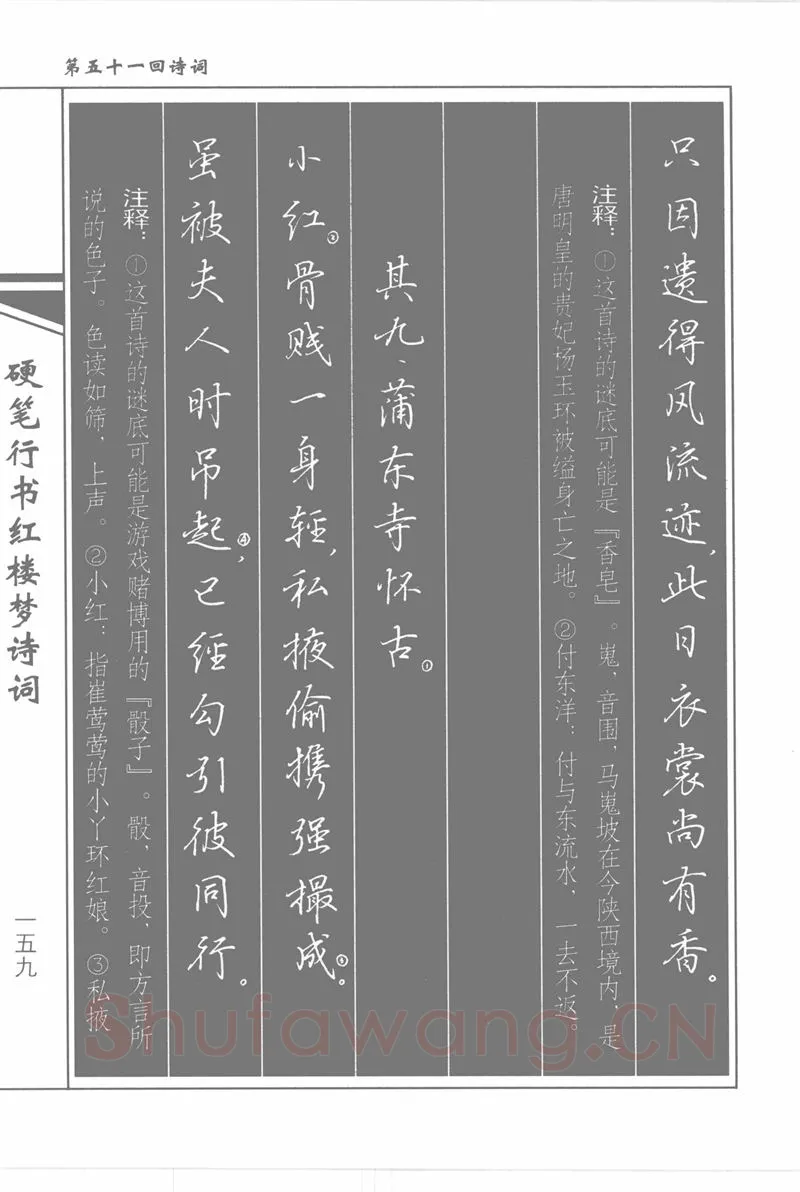 第五十一回诗词
只因遗得风流迹，此日衣裳尚有香。
注释：①这首诗的谜底可能是『香皂』。嵬，音围，马嵬坡在今陕西境内，是
唐明皇的贵妃杨玉环被缢身亡之地。②付东洋：付与东流水，一去不返。
其九、蒲东寺怀古①
小红②骨贱一身轻，私掖偷携强撮成③。
虽被夫人时吊起④，已经勾引彼同行。
注释：①这首诗的谜底可能是游戏赌博用的『骰子』。骰，音投，即方言所
说的色子。色读如筛，上声。②小红：指崔莺莺的小丫环红娘。③私掖
硬笔行书红楼梦诗词
一五九
Shufawang.CN